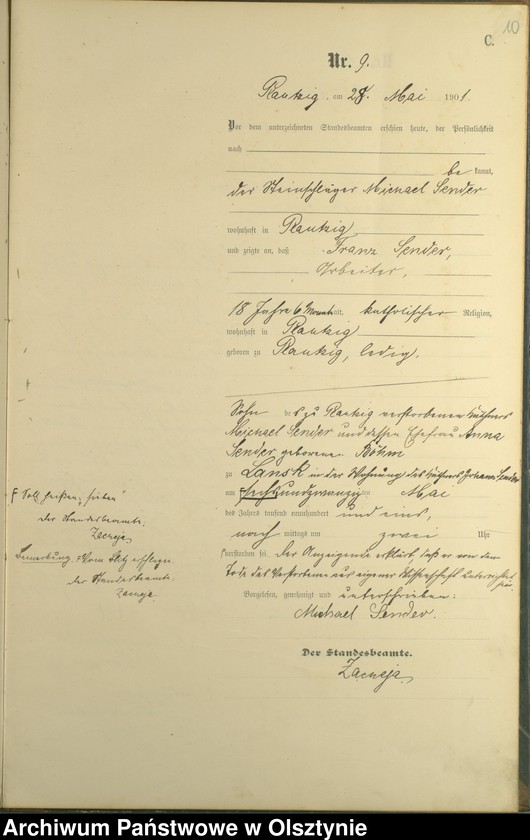 10
C.
Nr. 9.
Plautzig, am 28. Mai 1901.
Vor dem unterzeichneten Standesbeamten erschien heute, der Persönlichkeit
nach
be kannt,
der Steinschläger Michael Sender
wohnhaft in Plautzig
und zeigte an, daß Franz Sender,
Arbeiter,
18 Jahre 6 Monate alt, katholischer Religion,
wohnhaft in Plautzig
geboren zu Plautzig, ledig.
Sohn des zu Plautzig verstorbenen
Michael Sender und dessen Ehefrau Anna
Sender geborenen Böhm
zu Lansk in der Wohnung des Johann Sender
am sechsundzwanzigsten Mai
des Jahres tausend neunhundert und eins,
nach mittags um zwei Uhr
verstorben sei. Der Anzeigende erklärt, daß er von dem
Tode des Verstorbenen aus eigener Wissenschaft unterrichtet sei.
Vorgelesen, genehmigt und unterschrieben:
Michael Sender.
Der Standesbeamte.
Zacheja
F Soll heißen: „sieben"
der Standesbeamte.
Zacheja
Bemerkung: Vom Blitz erschlagen.
der Standesbeamte.
Zacheja
Archiwum Państwowe w Olsztynie